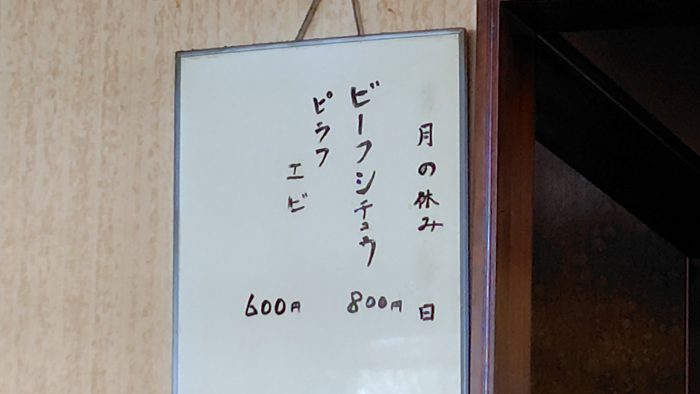 月の休み 日
ビーフシチュウ 800円
ピラフ
エビ 600円